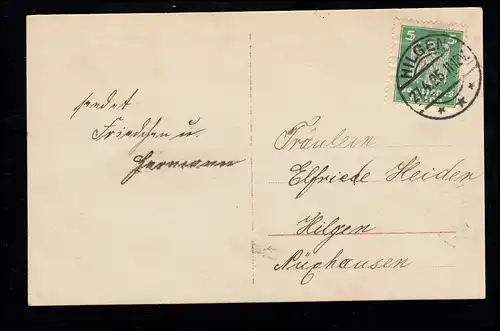 sendet
Friedchen u.
Hermann
5 5
HILGEN
21.4.25.
Fräulein
Elfriede Heiden
Hilgen
Nüxhausen